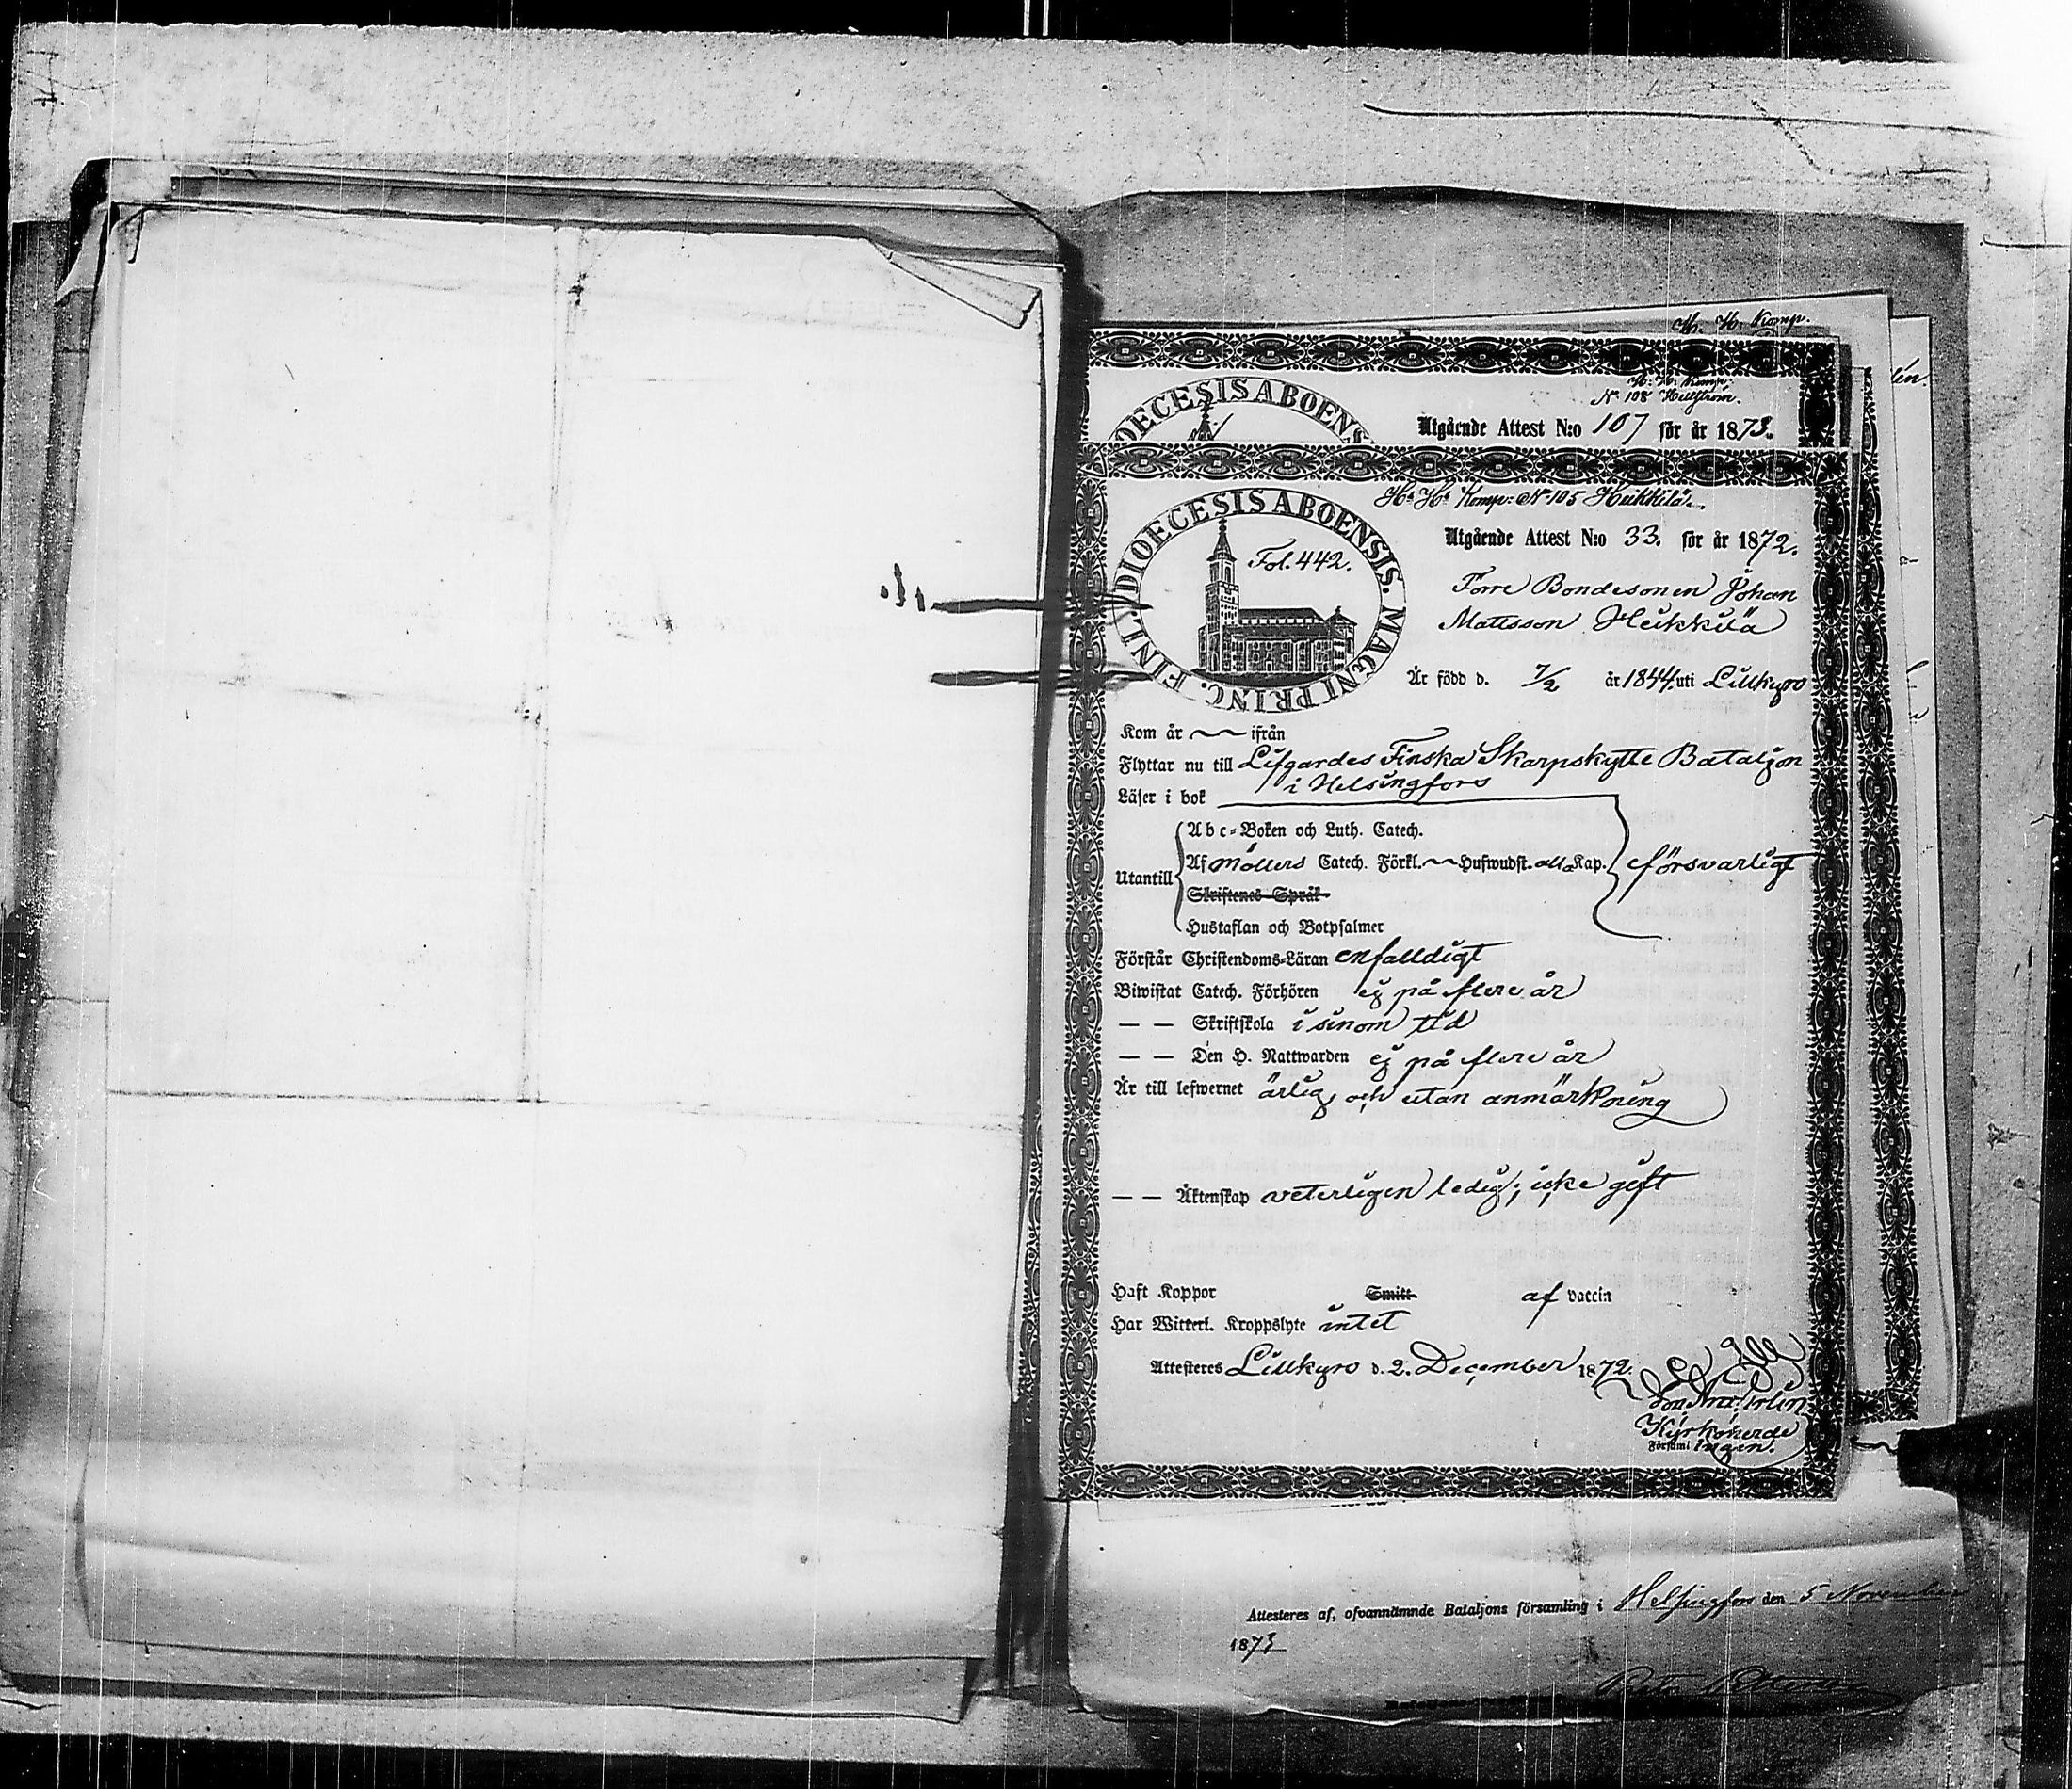 H. H. Komp.
H. H. Komp.
No 108 Hellström.
DIOECESIS ABOENSIS
Utgående Attest N:o 107 för år 1873.
H. H. Komp: No 105 Heikkilä.
DIOECESIS ABOENSIS. MAGNI PRINC. FINL.
Fol. 442.
Utgående Attest N:o 33. för år 1872.
Förre Bondesonen Johan
Mattsson Heikkilä
Är född d. 7/2 år 1844. uti Lillkyro
Kom år — ifrån
Flyttar nu till Lifgardes Finska Skarpskytte Bataljon
i Helsingfors
Läser i bok
Utantill
Abc-Boken och Luth. Catech.
Af Möllers Catech. Förkl. — Hufwudst. alla Kap. försvarligt
Skriftenes Språk
Hustaflan och Botpsalmer
Förstår Christendoms-Läran enfalldigt
Biwistat Catech. Förhören ej på flere år
— — Skriftskola i sinom tid
— — Den H. Nattwarden ej på flere år
Är till lefwernet ärlig och utan anmärkning
— — Äktenskap veterligen ledig; icke gift
Haft Koppor Smitt af vaccin
Har Witterl. Kroppslyte intet
Attesteres Lillkyro d. 2. December 1872.
Kyrkoherde
Församlingen.
Attesteres af, ofvannämnde Bataljons församling i Helsingfors den 5 November
1873